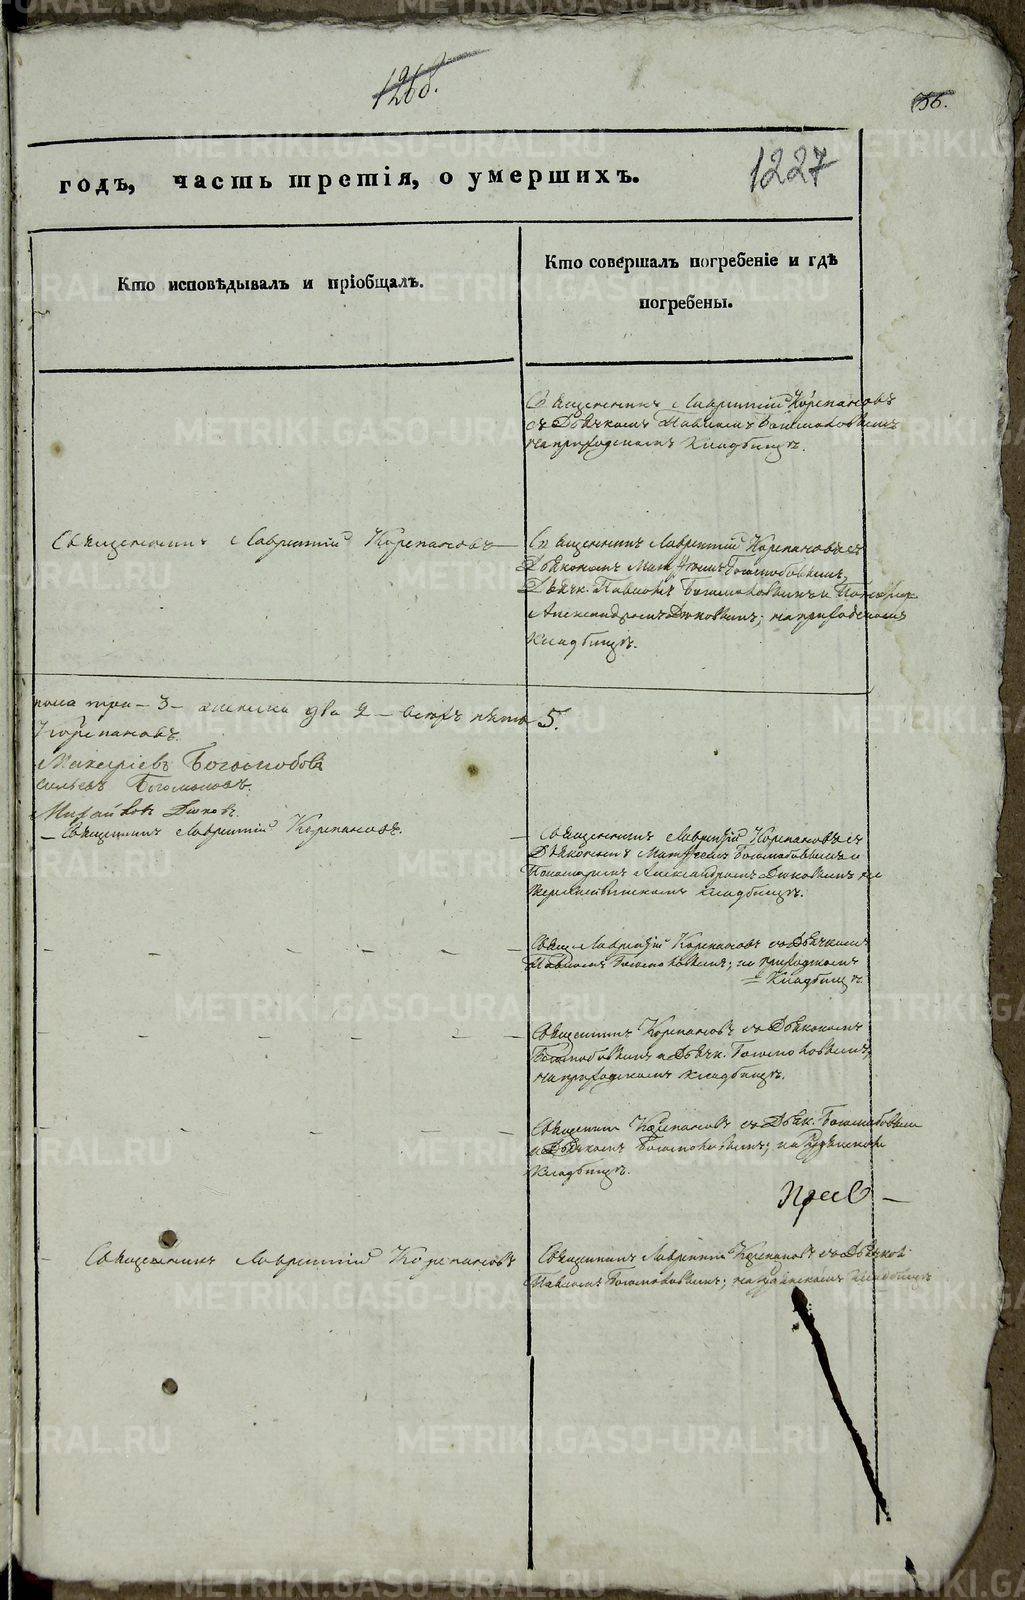 126б.
56.
1227
годъ, часть третія, о умершихъ.
Кто исповѣдывалъ и пріобщалъ.
Кто совершалъ погребеніе и гдѣ
погребены.
Священникъ Лаврентій Корепановъ
съ Дьячкомъ Павломъ Богомоловымъ
на приходскомъ кладбищѣ.
Священникъ Лаврентій Корепановъ
Священникъ Лаврентій Корепановъ съ
Діякономъ Боголюбовымъ,
Дьячк. Павломъ Богомоловымъ и Пономар.
Александромъ Дюковымъ; на приходскомъ
кладбищѣ.
пола три - 3 - женска два 2 - всѣхъ пять 5.
Корепановъ.
Боголюбовъ
Богомоловъ.
Михайловъ Дюковъ.
Священникъ Лаврентій Корепановъ.
Священникъ Лаврентій Корепановъ съ
Діякономъ Боголюбовымъ и
Пономаремъ Александромъ Дюковымъ на
кладбищѣ.
Свящ. Лаврентій Корепановъ съ Дьячкомъ
Павломъ Богомоловымъ; на приходскомъ
кладбищѣ.
Священникъ Корепановъ съ Діякономъ
Боголюбовымъ и Дьячк. Богомоловымъ,
на приходскомъ кладбищѣ.
Священникъ Корепановъ съ Діяк. Боголюбовымъ
и Дьячкомъ Богомоловымъ; на
кладбищѣ.
Священникъ Лаврентій Корепановъ
Священникъ Лаврентій Корепановъ съ Дьячкомъ
Павломъ Богомоловымъ; на кладбищѣ
METRIKI.GASO-URAL.RU